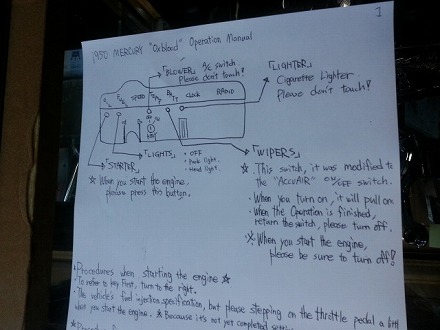 1950 MERCURY "Oxblood" Operation Manual
「BLOWER」 A/C switch
Please don't touch!
「LIGHTER」
Cigarette Lighter
Please don't touch!
SPEED
CLOCK
RADIO
「LIGHTS」
• OFF
• Park light.
• Head light.
「STARTER」
☆ When you start the engine,
please press this button.
「WIPERS」
☆ This switch, it was modified to
the "ACCUAIR" ON/OFF switch.
• When you turn on, it will pull on
• When the Operation is finished,
return the switch, please turn off.
※ When you start the engine,
please be sure to turn off!
☆ Procedures when starting the engine ☆
• To refer to key First, turn to the right.
• The vehicle's fuel injection specification, but please stepping on the throttle pedal a bit
when you start the engine. ☆ Because it's not yet completed